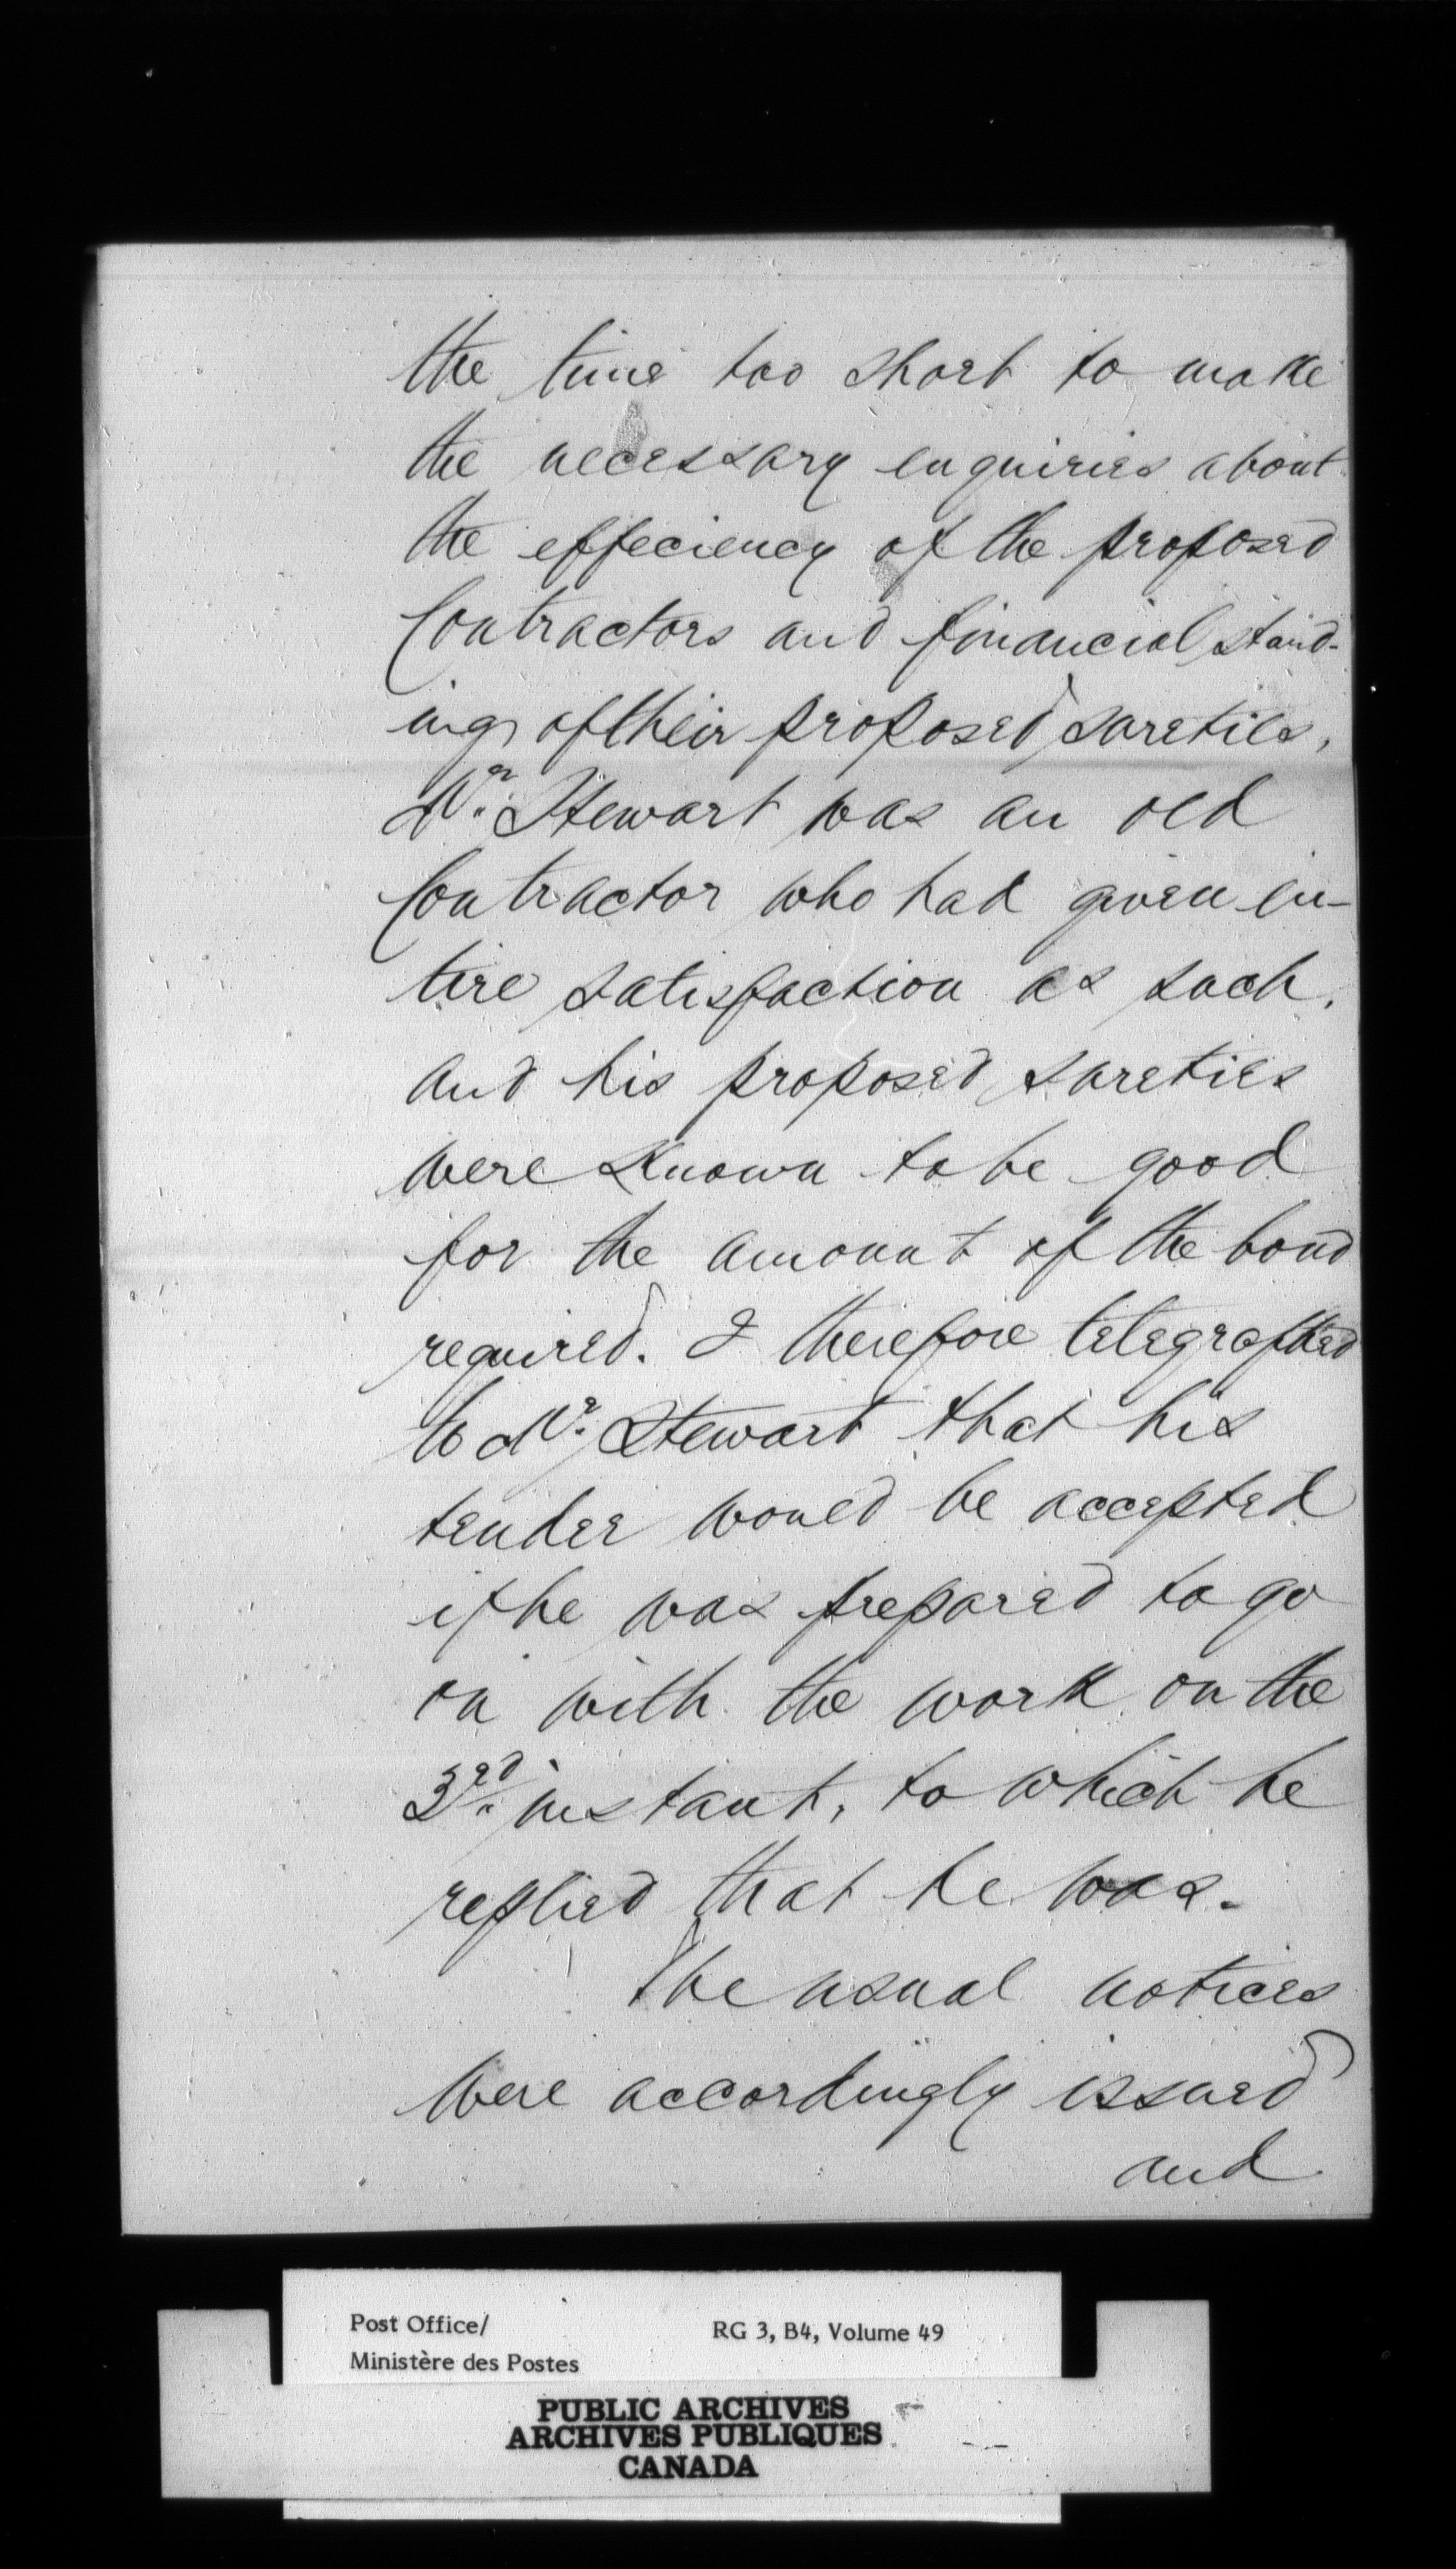 the time too short to make
the necessary enquiries about
the effeciency of the proposed
Contractors and financial stand-
ing of their proposed sureties,
Mr. Stewart was an old
Contractor who had given en-
tire satisfaction as such,
and his proposed sureties
were known to be good
for the amount of the bond
required. I therefore telegraphed
to Mr. Stewart that his
tender would be accepted
if he was prepared to go
on with the work on the
3rd instant, to which he
replied that he was.
The usual notices
were accordingly issued
and
Post Office/
Ministère des Postes
RG 3, B4, Volume 49
PUBLIC ARCHIVES
ARCHIVES PUBLIQUES
CANADA